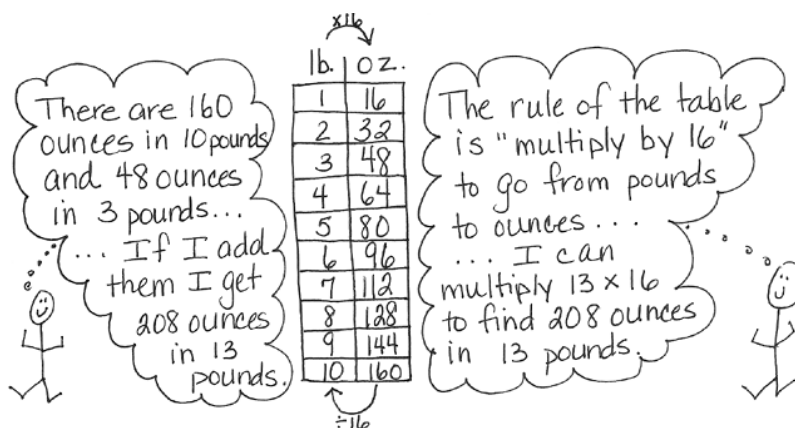 There are 160
ounces in 10 pounds
and 48 ounces
in 3 pounds...
... If I add
them I get
208 ounces
in 13
pounds.
x16
lb. oz.
1 16
2 32
3 48
4 64
5 80
6 96
7 112
8 128
9 144
10 160
÷16
The rule of the table
is "multiply by 16"
to go from pounds
to ounces...
... I can
multiply 13 x 16
to find 208 ounces
in 13 pounds.